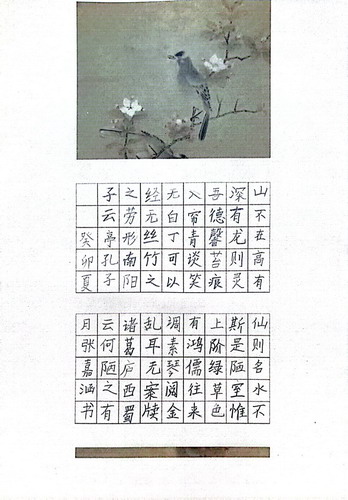 山不在高有仙则名水不
深有龙则灵斯是陋室惟
吾德馨苔痕上阶绿草色
入帘青谈笑有鸿儒往来
无白丁可以调素琴阅金
经无丝竹之乱耳无案牍
之劳形南阳诸葛庐西蜀
子云亭孔子云何陋之有
癸卯夏月张嘉书